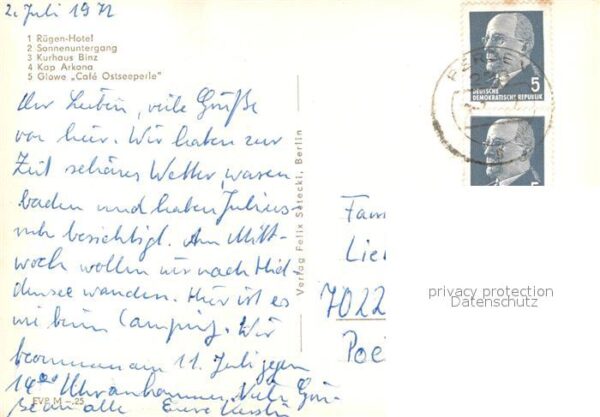 2. Juli 1972
1 Rügen-Hotel
2 Sonnenuntergang
3 Kurhaus Binz
4 Kap Arkona
5 Glowe „Café Ostseeperle"
Ihr Lieben, viele Grüße
von hier. Wir haben zur
Zeit schönes Wetter, waren
baden und haben Julius-
ruh besichtigt. Am Mitt-
woch wollen wir nach Hid-
densee wandern. Hier ist es
wie beim Camping. Wir
am 11. Juli gegen
14⁰⁰ Uhr ankommen. Viele Grü-
ße an alle Eure Kerstin
EVP M –.25
Verlag Felix Setecki, Berlin
DEUTSCHE
DEMOKRATISCHE REPUBLIK
5
5
Fam
Lie
7022
Poe
privacy protection
Datenschutz